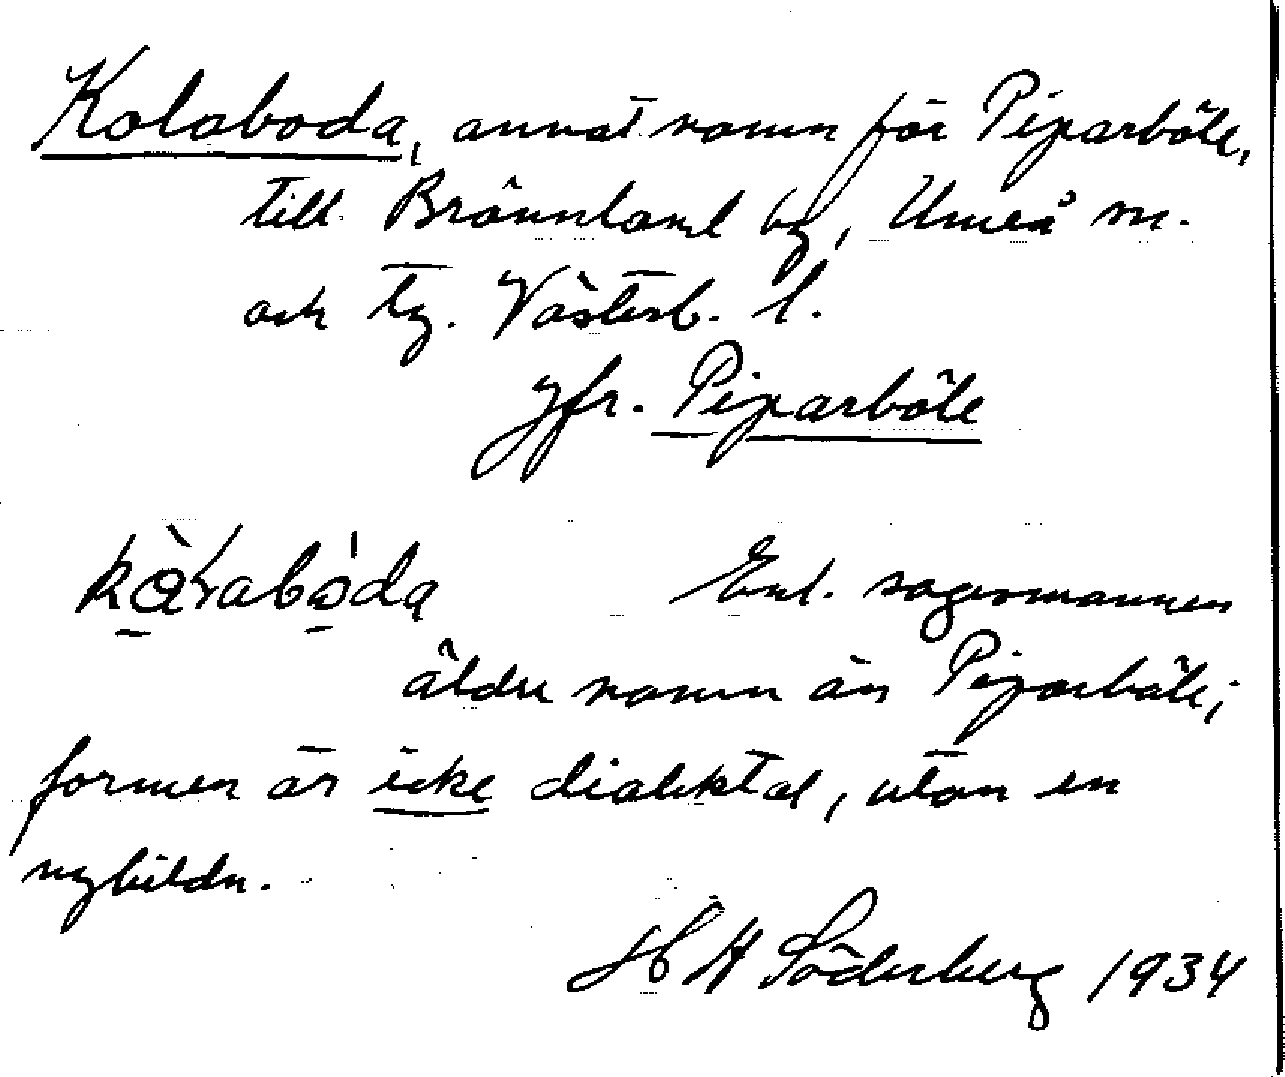 Kolaboda, annat namn för Piparböle,
till Brännland by, Umeå sn.
och tg. Västerb. l.
Jfr. Piparböle
Enl. sagesmannen
äldre namn än Piparböle;
formen är icke dialektal, utan en
nybildn.
H Söderberg 1934